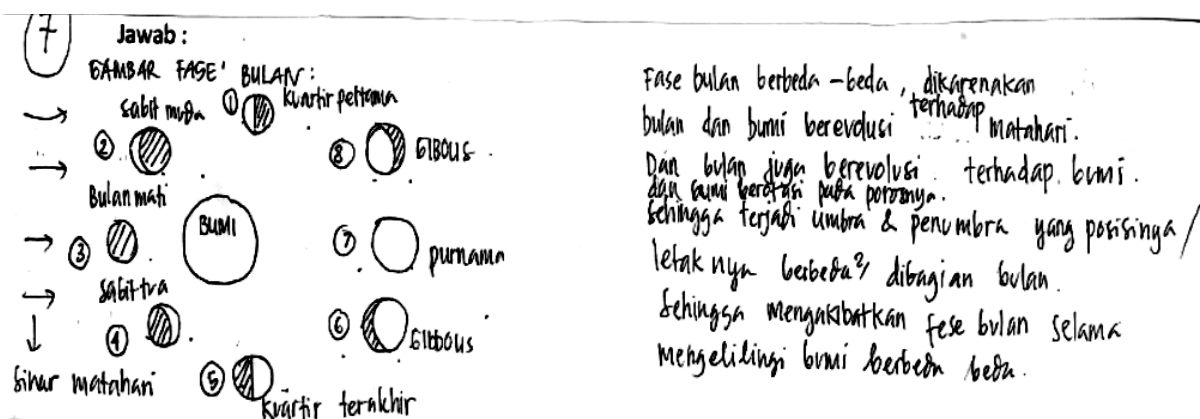 7
Jawab :
GAMBAR FASE' BULAN :
① kuartir pertama
sabit muda
②
⑧ GIBOUS
Bulan mati
③
BUMI
⑦ purnama
sabit tua
④
⑥ Gibbous
⑤
kuartir terakhir
sinar matahari
Fase bulan berbeda - beda, dikarenakan
bulan dan bumi berevolusi terhadap matahari.
Dan bulan juga berevolusi terhadap bumi.
dan bumi berotasi pada porosnya.
Sehingga terjadi umbra & penumbra yang posisinya /
letak nya berbeda² dibagian bulan.
Sehingga mengakibatkan fese bulan selama
mengelilingi bumi berbeda beda.